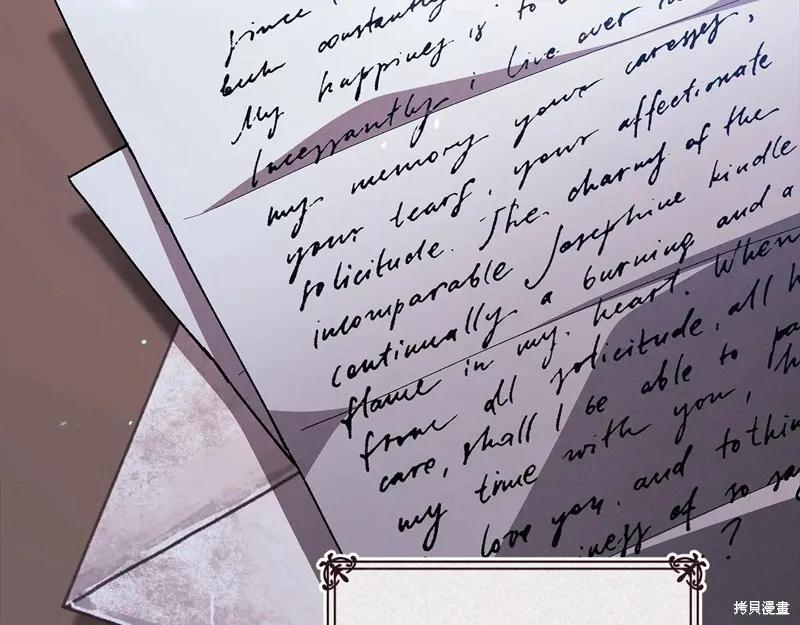 since
but constantly
My happines is to
Incessantly i live over in
my memory your caresses,
your tears, your affectionate
solicitude. The charms of the
incomparable Josephine kindle
continually a burning and a
flame in my heart. When
from all solicitude, all h
care, shall I be able to pa
my time with you, h
love you, and to thin
iness of so say
?
拷貝漫畫